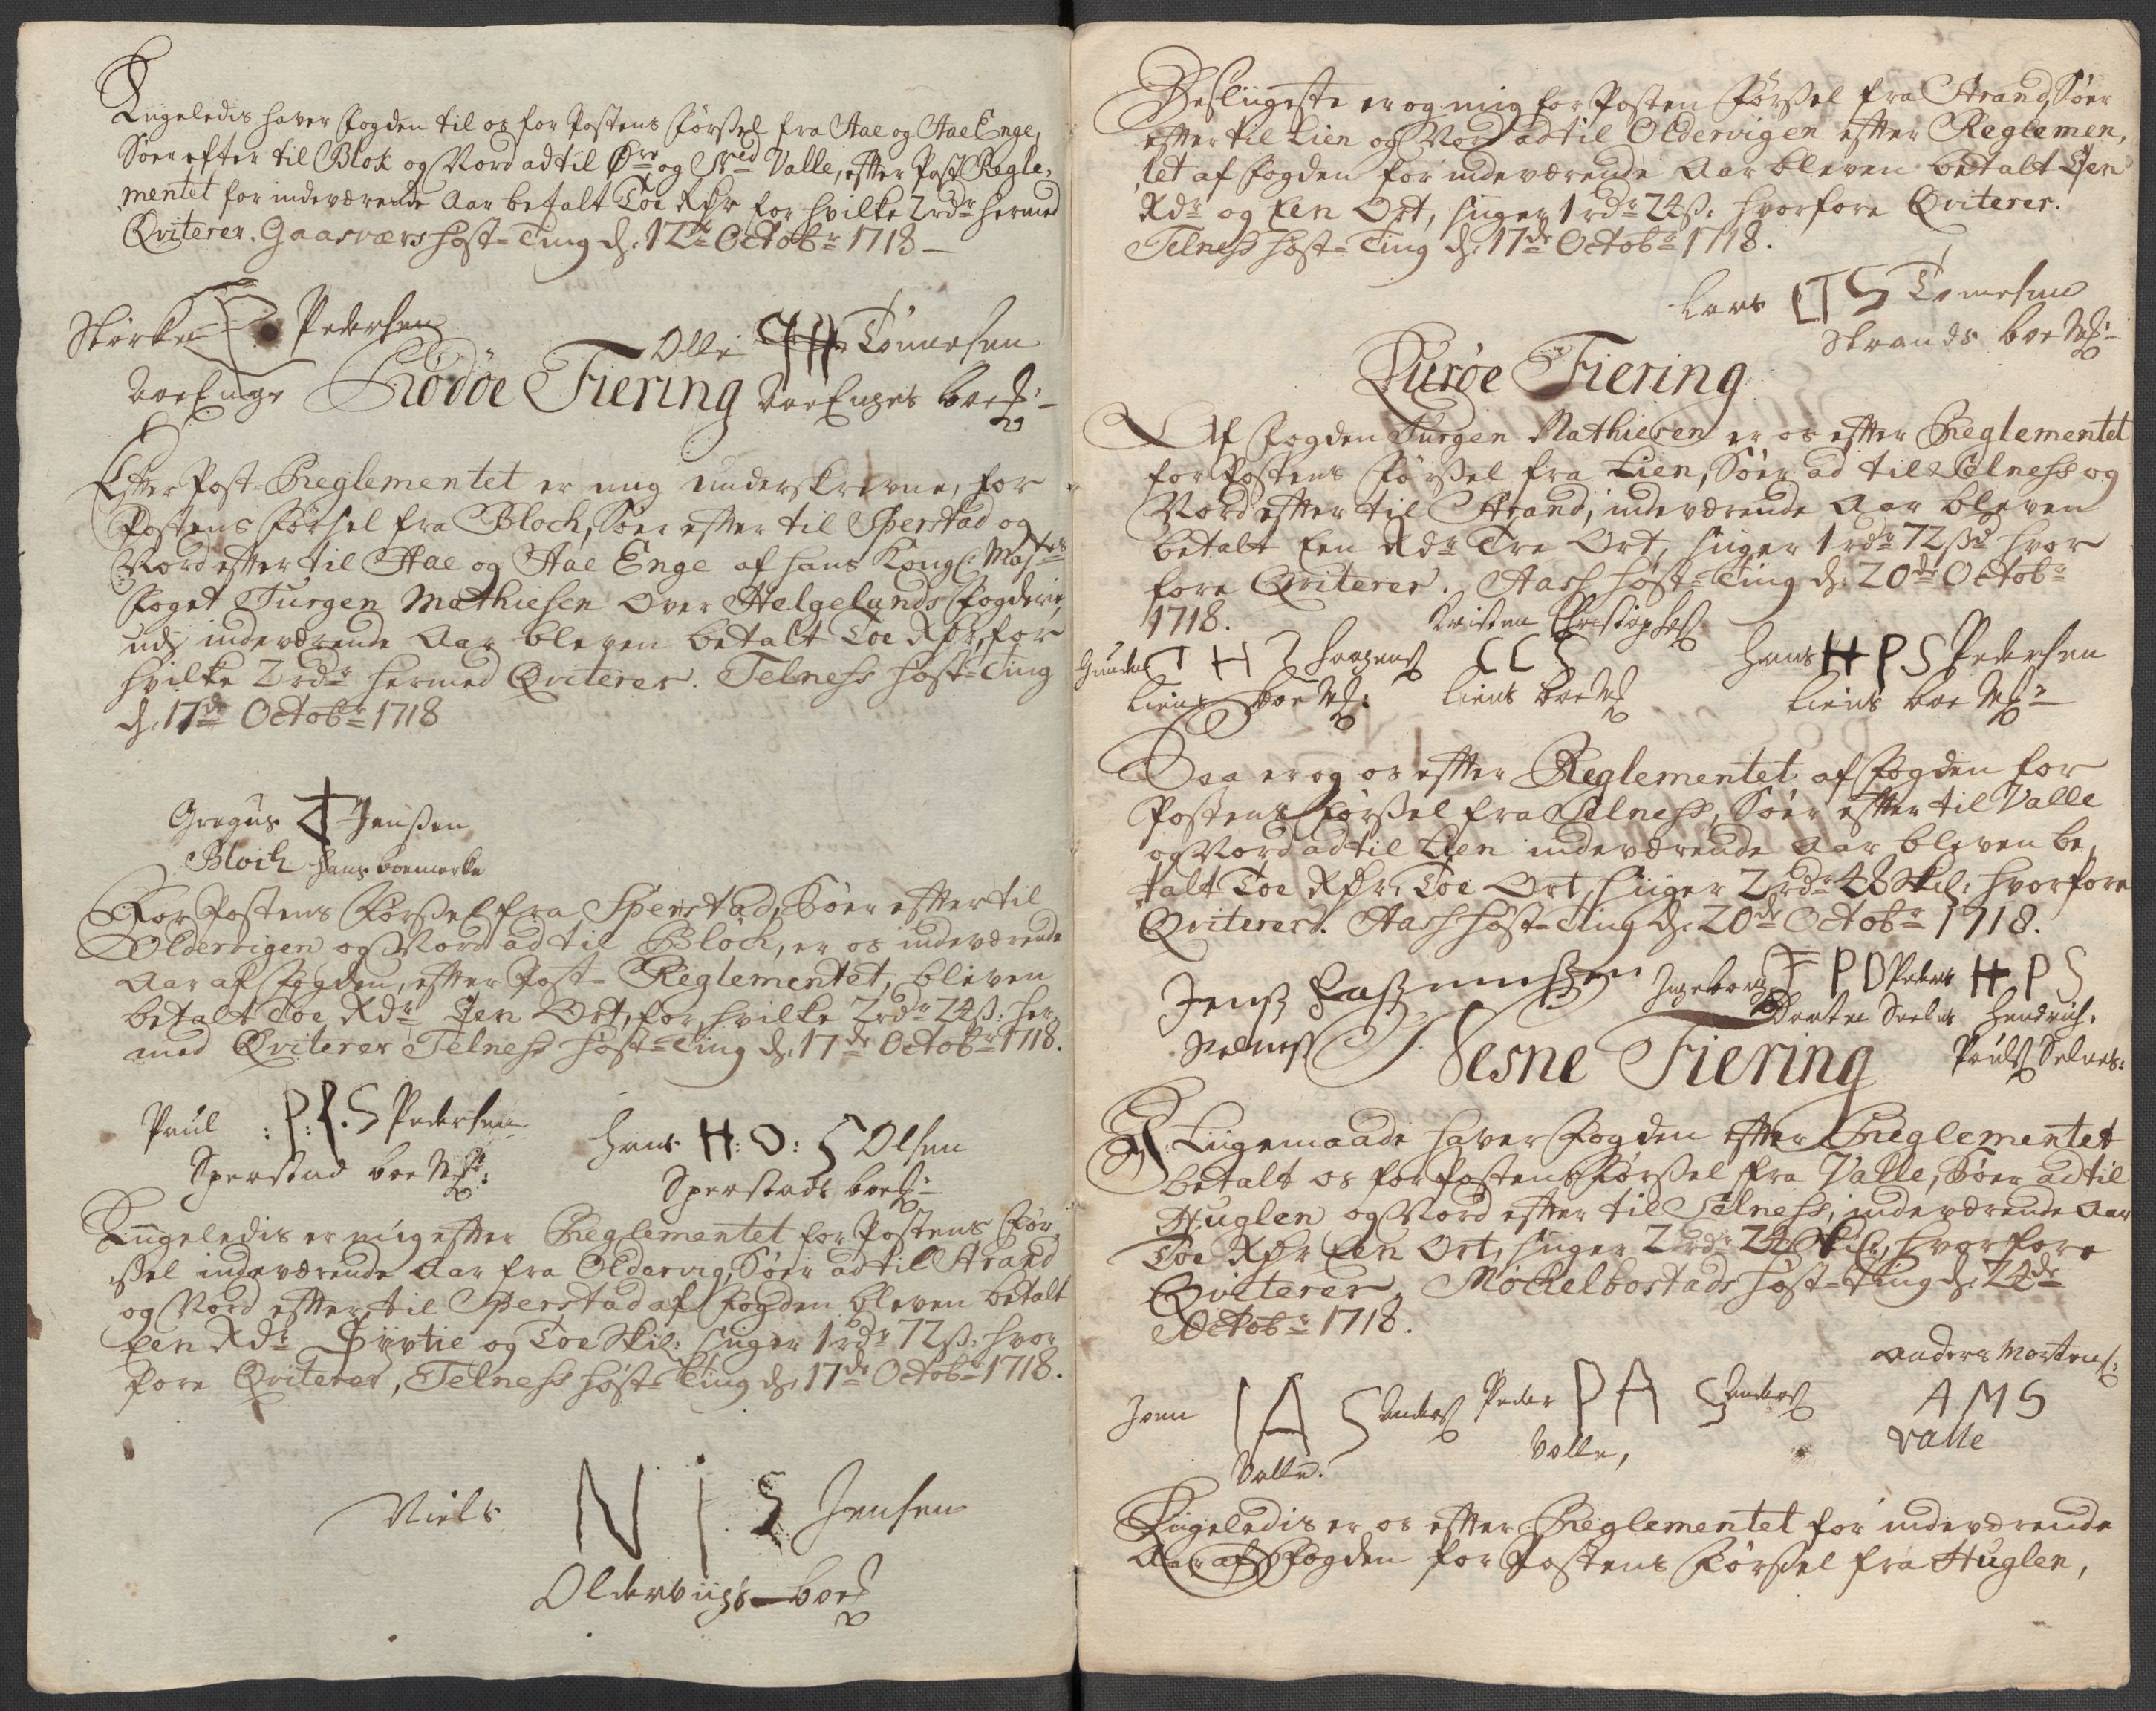 Liigeledis haver Fogden til os for Postens Førsel fra Aae og Aae Enge,
Søer efter til Blok og Nord ad til Øre og Ned Valle, efter Post Regle,
mentet for indeværende Aar betalt Toe Rdr for hvilke 2 rdr hermed
Qviterer. Gaasværs Høst-Ting d. 12te Octobr 1718 –
Størker Pedersen
Olle Tønnesen
Aae Enge
Aae Enges boe
Rødøe Fiering
Efter Post-Reglementet er mig underskrevne, for
Postens Førsel fra Bloch, Søer efter til Sperstad og
Nord efter til Aae og Aae Enge af Hans Kongl: Maysts
Foget Jurgen Mathiesen Over Helgelands Fogderie,
udj indeværende Aar bleven betalt Toe Rdr, for
hvilke 2 rdr hermed Qviterer. Telness Høst-Ting
d. 17de Octobr 1718
Gregus Jenssen
Bloch hans boemerke
For Postens Førssel fra Sperstad, Søer efter til
Oldervigen og Nord ad til Bloch, er os indeværende
Aar af Fogden, efter Post-Reglementet, bleven
betalt Toe Rdr Een Ort, for hvilke 2 rdr 24 ß: her,
med Qviterer Telness Høst-Ting d. 17de Octobr 1718.
Paul :P:P.S Pedersen
Hans H:O:S Olsen
Sperstad boe Mk:
Sperstads boe
Liigeledis er mig efter Reglementet for Postens Før,
ssel indeværende Aar fra Oldervig, Søer ad til Strand
og Nord efter til Sperstad af Fogden bleven betalt
Een Rdr Syvtie og Toe Skil: siiger 1 rdr 72 ß: hvor
fore Qviterer, Telness Høst-Ting d. 17de Octobr 1718.
Niels N I S Jensen
Olderviigs boe
Desliigeste er og mig for Posten Førssel fra Strand, Søer
efter til Lien og Nord ad til Oldervigen efter Reglemen,
tet af Fogden for indeværende Aar bleven betalt Een
Rdr og Een Ort, siiger 1 rdr 24 ß: hvorfore Qviterer.
Telness Høst-Ting d. 17de Octobr 1718.
Lars LTS Tomesen
Strands boe Mk:
Lurøe Fiering
Af Fogden Jurgen Mathiesen er os efter Reglementet
for Postens Førssel fra Lien, Søer ad til Selness og
Nord efter til Strand, indeværende Aar bleven
betalt Een Rdr Tre Ort, siiger 1 rdr 72 ßd hvor
fore Qviterer. Aash Høst-Ting d. 20de Octobr
1718.
Kristen Christophers
C C S
Hans H P S Pedersen
Liens boe Mk:
Liens boe Mk
Liens boe Mk:
Saa er og os efter Reglementet af Fogden for
Postens Førssel fra Selness, Søer efter til Valle
og Nord ad til Lien indeværende Aar bleven be,
talt Toe Rdr. Toe Ort, siiger 2 rdr 48 Skil: hvorfore
Qviterer. Aash Høst-Ting d. 20de Octobr 1718.
Jenss Rassmussen
Ingeborg I P D Peders
H P S
Selness
Daater Seelnes
Hendrich
Pouls Selnes:
Nesne Fiering
I Liigemaade haver Fogden efter Reglementet
betalt os for Postens Førssel fra Valle, Søer ad til
Huglen og Nord efter til Selness, indeværende Aar
Toe Rdr Een Ort, siiger 2 rdr 24 Skil, hvorfore
Qviterer, Møckelbostads Høst-Ting d. 24de
Octobr 1718.
Anders Mortens:
Joen I A S Anders
Peder P A S Anders
A M S
Valle.
Valle,
Valle
Liigeledis er os efter Reglementet for indeværende
Aar af Fogden for Postens Førssel fra Huglen,